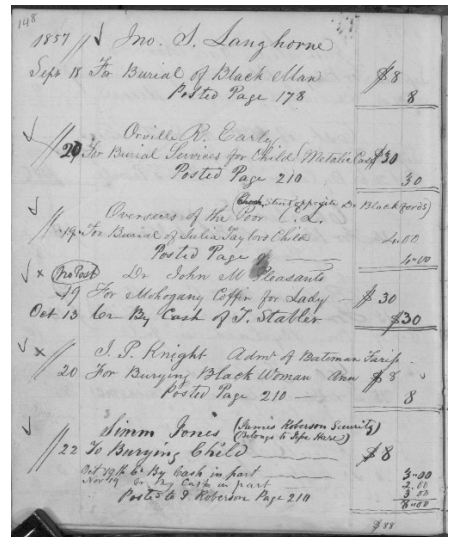 148
1857 // Jno. S. Langhorne
Sept 18 For Burial of Black Man $8
Posted Page 178 8
Orville R. Early
// 20 For Burial Services for Child (Metalic Case) $30
Posted Page 210 30
(Church Street opposite Dr Blackfords)
Overseers of the Poor C. L.
// 19 For Burial of Julia Taylors Child 4.00
Posted Page 4.00
x Pro Post Dr John M Pleasants
19 For Mohogany Coffin for Lady $30
Oct 13 Cr By Cash of T. Stabler $30
x J. P. Knight Admr of Bateman
// 20 For Burying Black Woman Ann $8
Posted Page 210 — 8
Simm Jones (James Roberson Security)
(Belongs to Hare)
// 22 To Burying Child $8
Oct 19th Cr By Cash in part 3.00
Nov 19 Cr By Cash in part 2.00
3.00
Posted to J Roberson Page 210 8.00
$88